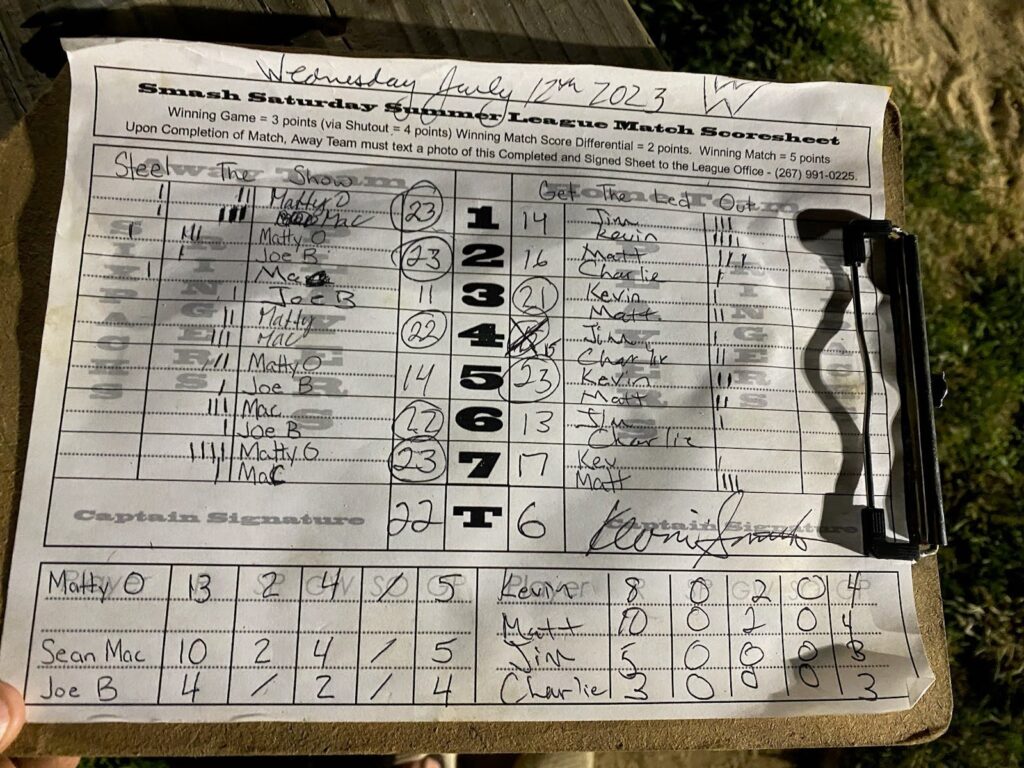 Wednesday July 12th 2023 W
Smash Saturday Summer League Match Scoresheet
Winning Game = 3 points (via Shutout = 4 points) Winning Match Score Differential = 2 points. Winning Match = 5 points
Upon Completion of Match, Away Team must text a photo of this Completed and Signed Sheet to the League Office - (267) 991-0225.
Steel The Show Get The Led Out
Away Team Home Team
Matty O 23 1 14 Jim
Mac Kevin
Matty O 23 2 16 Matt
Joe B Charlie
Mac 11 3 21 Kevin
Joe B Matt
Matty 22 4 15 Jim
Mac Charlie
Matty O 14 5 23 Kevin
Joe B Matt
Mac 22 6 13 Jim
Joe B Charlie
Matty O 23 7 17 Kev
Mac Matt
Captain Signature 22 T 6 Captain Signature
Player Player
Matty O 13 2 4 / 5 Kevin 8 0 2 0 4
Matt 10 0 2 0 4
Sean Mac 10 2 4 / 5 Jim 5 0 0 0 3
Joe B 4 / 2 / 4 Charlie 3 0 0 0 3